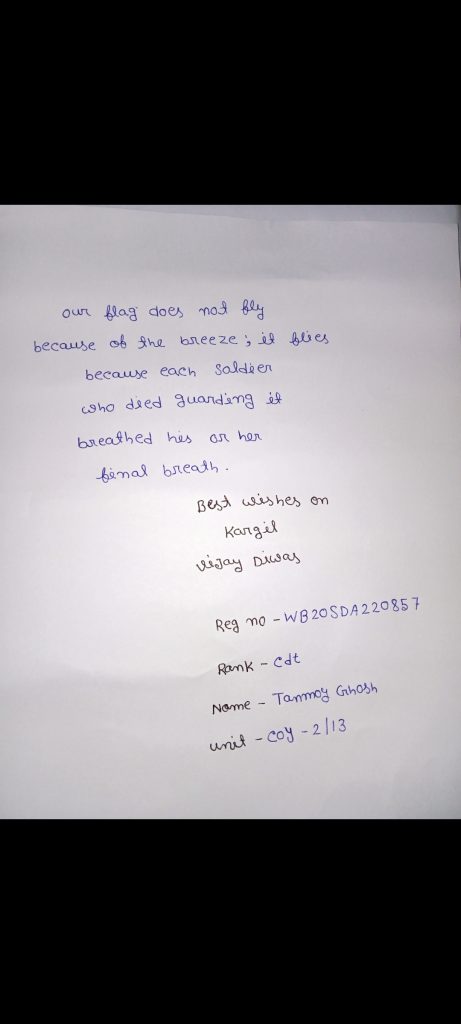 our flag does not fly
because of the breeze; it flies
because each soldier
who died guarding it
breathed his or her
final breath.
Best wishes on
Kargil
Vijay Diwas
Reg no - WB20SDA220857
Rank - cdt
Name - Tanmoy Ghosh
unit - coy - 2/13